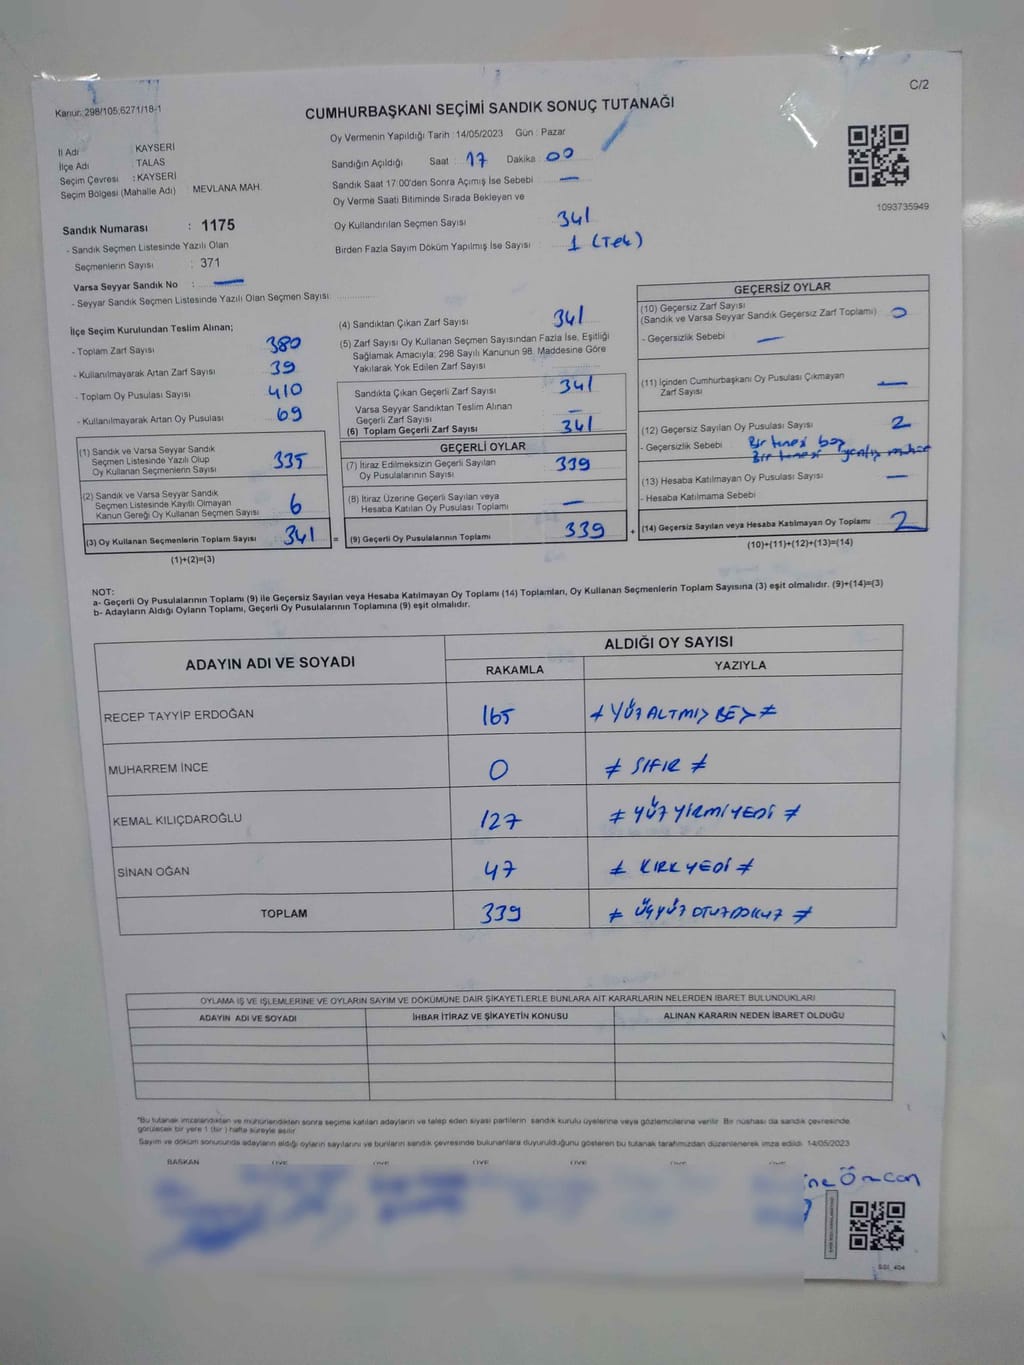 C/2
Kanun: 298/105;6271/18-1
CUMHURBAŞKANI SEÇİMİ SANDIK SONUÇ TUTANAĞI
Oy Vermenin Yapıldığı Tarih :14/05/2023 Gün : Pazar
İl Adı : KAYSERİ
İlçe Adı : TALAS
Seçim Çevresi : KAYSERİ
Seçim Bölgesi (Mahalle Adı) : MEVLANA MAH.
Sandık Numarası : 1175
- Sandık Seçmen Listesinde Yazılı Olan
Seçmenlerin Sayısı : 371
Varsa Seyyar Sandık No : —
- Seyyar Sandık Seçmen Listesinde Yazılı Olan Seçmen Sayısı:
Sandığın Açıldığı Saat : 17 Dakika : 00
Sandık Saat 17:00'den Sonra Açımış İse Sebebi : —
Oy Verme Saati Bitiminde Sırada Bekleyen ve
Oy Kullandırılan Seçmen Sayısı : 341
Birden Fazla Sayım Döküm Yapılmış İse Sayısı : 1 (Tek)
1093735949
İlçe Seçim Kurulundan Teslim Alınan;
- Toplam Zarf Sayısı : 380
- Kullanılmayarak Artan Zarf Sayısı : 39
- Toplam Oy Pusulası Sayısı : 410
- Kullanılmayarak Artan Oy Pusulası : 69
(1) Sandık ve Varsa Seyyar Sandık
Seçmen Listesinde Yazılı Olup
Oy Kullanan Seçmenlerin Sayısı : 335
(2) Sandık ve Varsa Seyyar Sandık
Seçmen Listesinde Kayıtlı Olmayan
Kanun Gereği Oy Kullanan Seçmen Sayısı : 6
(3) Oy Kullanan Seçmenlerin Toplam Sayısı : 341
(1)+(2)=(3)
(4) Sandıktan Çıkan Zarf Sayısı : 341
(5) Zarf Sayısı Oy Kullanan Seçmen Sayısından Fazla İse, Eşitliği
Sağlamak Amacıyla; 298 Sayılı Kanunun 98. Maddesine Göre
Yakılarak Yok Edilen Zarf Sayısı :
Sandıkta Çıkan Geçerli Zarf Sayısı : 341
Varsa Seyyar Sandıktan Teslim Alınan
Geçerli Zarf Sayısı : —
(6) Toplam Geçerli Zarf Sayısı : 341
GEÇERLİ OYLAR
(7) İtiraz Edilmeksizin Geçerli Sayılan
Oy Pusulalarının Sayısı : 339
(8) İtiraz Üzerine Geçerli Sayılan veya
Hesaba Katılan Oy Pusulası Toplamı : —
= (9) Geçerli Oy Pusulalarının Toplamı : 339 +
GEÇERSİZ OYLAR
(10) Geçersiz Zarf Sayısı
(Sandık ve Varsa Seyyar Sandık Geçersiz Zarf Toplamı) : 0
- Geçersizlik Sebebi : —
(11) İçinden Cumhurbaşkanı Oy Pusulası Çıkmayan
Zarf Sayısı : —
(12) Geçersiz Sayılan Oy Pusulası Sayısı : 2
- Geçersizlik Sebebi : Bir tanesi boş
Bir tanesi yanlış mühür
(13) Hesaba Katılmayan Oy Pusulası Sayısı : —
- Hesaba Katılmama Sebebi :
(14) Geçersiz Sayılan veya Hesaba Katılmayan Oy Toplamı : 2
(10)+(11)+(12)+(13)=(14)
NOT:
a- Geçerli Oy Pusulalarının Toplamı (9) ile Geçersiz Sayılan veya Hesaba Katılmayan Oy Toplamı (14) Toplamları, Oy Kullanan Seçmenlerin Toplam Sayısına (3) eşit olmalıdır. (9)+(14)=(3)
b- Adayların Aldığı Oyların Toplamı, Geçerli Oy Pusulalarının Toplamına (9) eşit olmalıdır.
ADAYIN ADI VE SOYADI ALDIĞI OY SAYISI
RAKAMLA YAZIYLA
RECEP TAYYİP ERDOĞAN 165 ≠ YÜZALTMIŞ BEŞ ≠
MUHARREM İNCE 0 ≠ SIFIR ≠
KEMAL KILIÇDAROĞLU 127 ≠ YÜZ YİRMİ YEDİ ≠
SİNAN OĞAN 47 ≠ KIRK YEDİ ≠
TOPLAM 339 ≠ ÜÇYÜZ OTUZ DOKUZ ≠
OYLAMA İŞ VE İŞLEMLERİNE VE OYLARIN SAYIM VE DÖKÜMÜNE DAİR ŞİKAYETLERLE BUNLARA AİT KARARLARIN NELERDEN İBARET BULUNDUKLARI
ADAYIN ADI VE SOYADI İHBAR İTİRAZ VE ŞİKAYETİN KONUSU ALINAN KARARIN NEDEN İBARET OLDUĞU
*Bu tutanak imzalandıktan ve mühürlendikten sonra seçime katılan adayların ve talep eden siyasi partilerin sandık kurulu üyelerine veya gözlemcilerine verilir. Bir nüshası da sandık çevresinde
görülecek bir yere 1 (bir) hafta süreyle asılır.
Sayım ve döküm sonucunda adayların aldığı oyların sayılarını ve bunların sandık çevresinde bulunanlara duyurulduğunu gösteren bu tutanak tarafımızdan düzenlenerek imza edildi. 14/05/2023
BAŞKAN ÜYE ÜYE ÜYE ÜYE ÜYE
Özcan